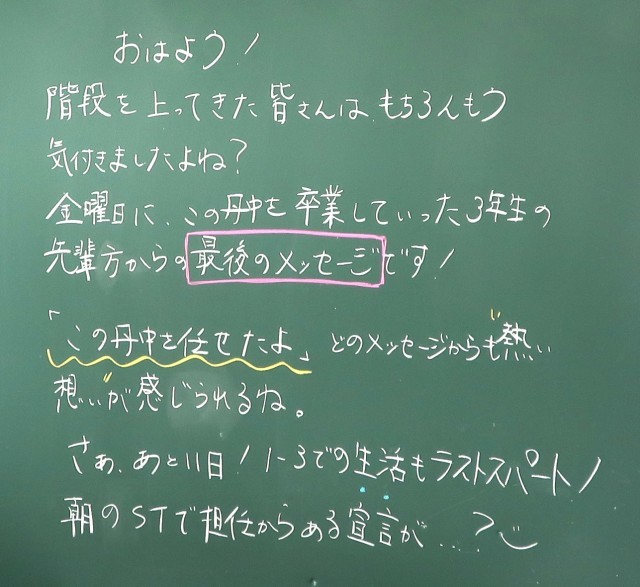 おはよう!
階段を上ってきた皆さんは、もちろんもう
気付きましたよね?
金曜日に、この丹中を卒業していった3年生の
先輩方からの最後のメッセージです!
「この丹中を任せたよ」どのメッセージからも"熱い
想い"が感じられるね。
さぁ、あと11日!1-3での生活もラストスパート!
朝のSTで担任からある宣言が…?